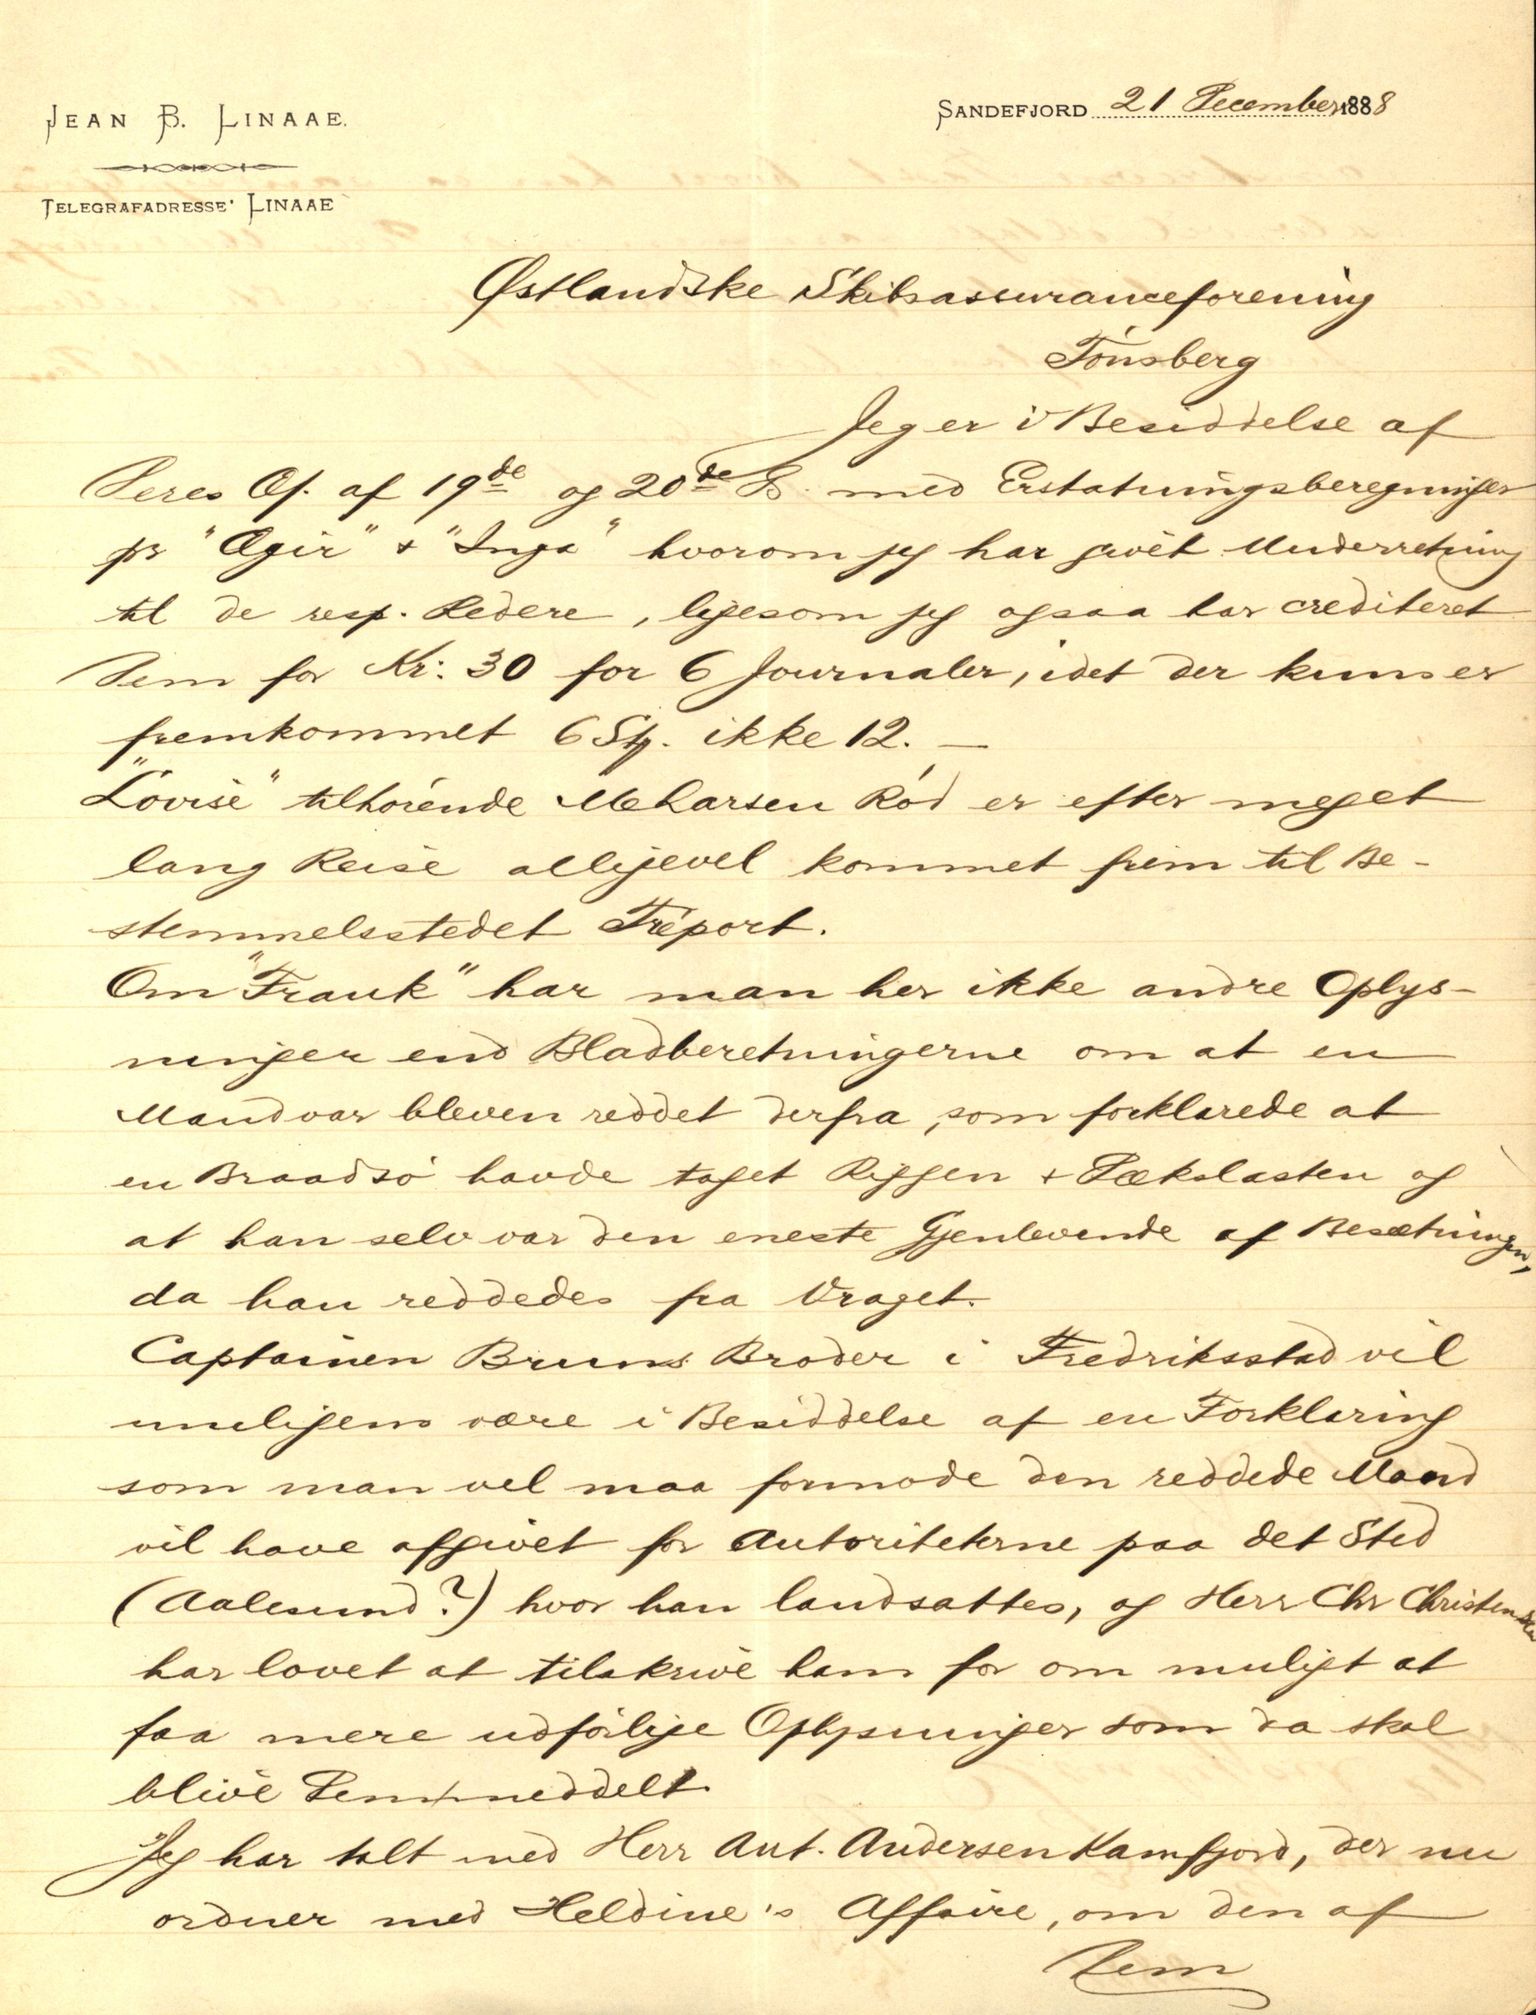 JEAN B. LINAAE.
SANDEFJORD 21 December 1888
TELEGRAFADRESSE' LINAAE
Østlandske Skibsassuranceforening
Tónsberg
Jeg er i Besiddelse af
Deres Ef. af 19de og 20de ds. med Erstatningsberegninger
pr "Ægir" & "Inga" hvorom jeg har givet Underretning
til de resp. Redere, ligesom jeg ogsaa har crediteret
Dem for Kr: 30 for 6 Journaler, idet der kun er
fremkommet 6 Stk. ikke 12. —
"Lovise" tilhórende M Larsen Ród er efter meget
lang Reise alligevel kommet frem til Be-
stemmelsstedet Tréport.
Om "Frank" har man her ikke andre Oplys-
ninger end Bladberetningerne om at en
Mand var bleven reddet derfra, som forklarede at
en Braadsó havde taget Riggen & Dækslasten og
at han selv var den eneste Gjenlevende af Besætningen,
da han reddedes fra Vraget.
Captainen Bruns Broder i Fredriksstad vil
muligens være i Besiddelse af en Forklaring
som man vel maa formode den reddede Mand
vil have afgivet for Autoriteterne paa det Sted
(Aalesund?) hvor han landsattes, og Herr Chr Christensen
har lovet at tilskrive ham for om muligt at
faa mere udfórlige Oplysninger som da skal
blive Dem meddelt.
Jeg har talt med Herr Ant. Andersen Kamfjord, der nu
ordner med Heldine's Affaire, om den af
Dem